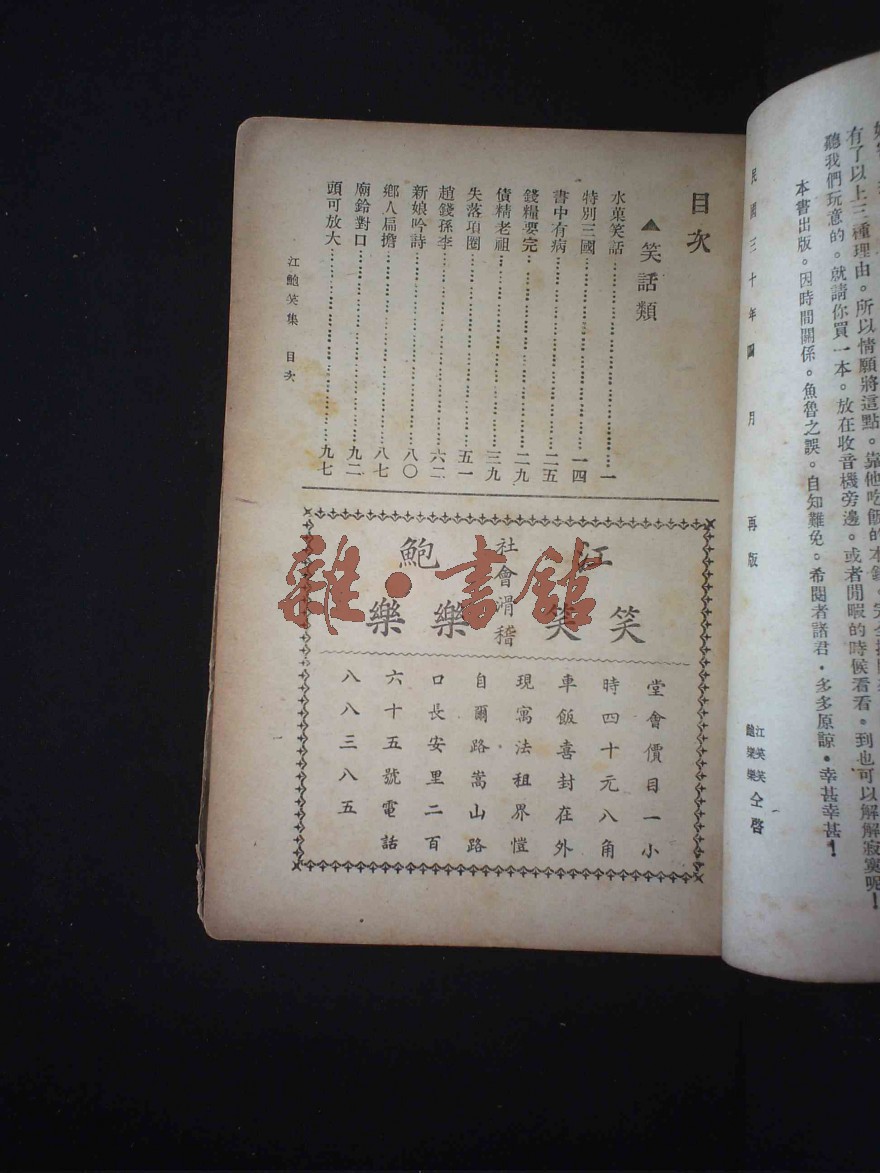 有了以上三種理由。所以情願將這點。靠他吃飯的本錢。完全
聽我們玩意的。就請你買一本。放在收音機旁邊。或者閒暇的時候看看。到也可以解解寂寞呢！
本書出版。因時間關係。魚魯之誤。自知難免。希閱者諸君．多多原諒．幸甚幸甚！
民國三十年四月　再版
江笑笑
鮑樂樂 仝啓
目次
▲笑話類
水菓笑話……一
特別三國……一四
書中有病……二五
錢糧要完……二九
債精老祖……三九
失落項圈……五一
趙錢孫李……六二
新娘吟詩……八〇
鄉人扁擔……八七
廟鈴對口……九二
頭可放大……九七
江鮑笑集　目次
江笑笑
社會滑稽
鮑樂樂
堂會價目一小
時四十元八角
車飯喜封在外
現寓法租界愷
自爾路嵩山路
口長安里二百
六十五號電話
八八三八五
雜·書館